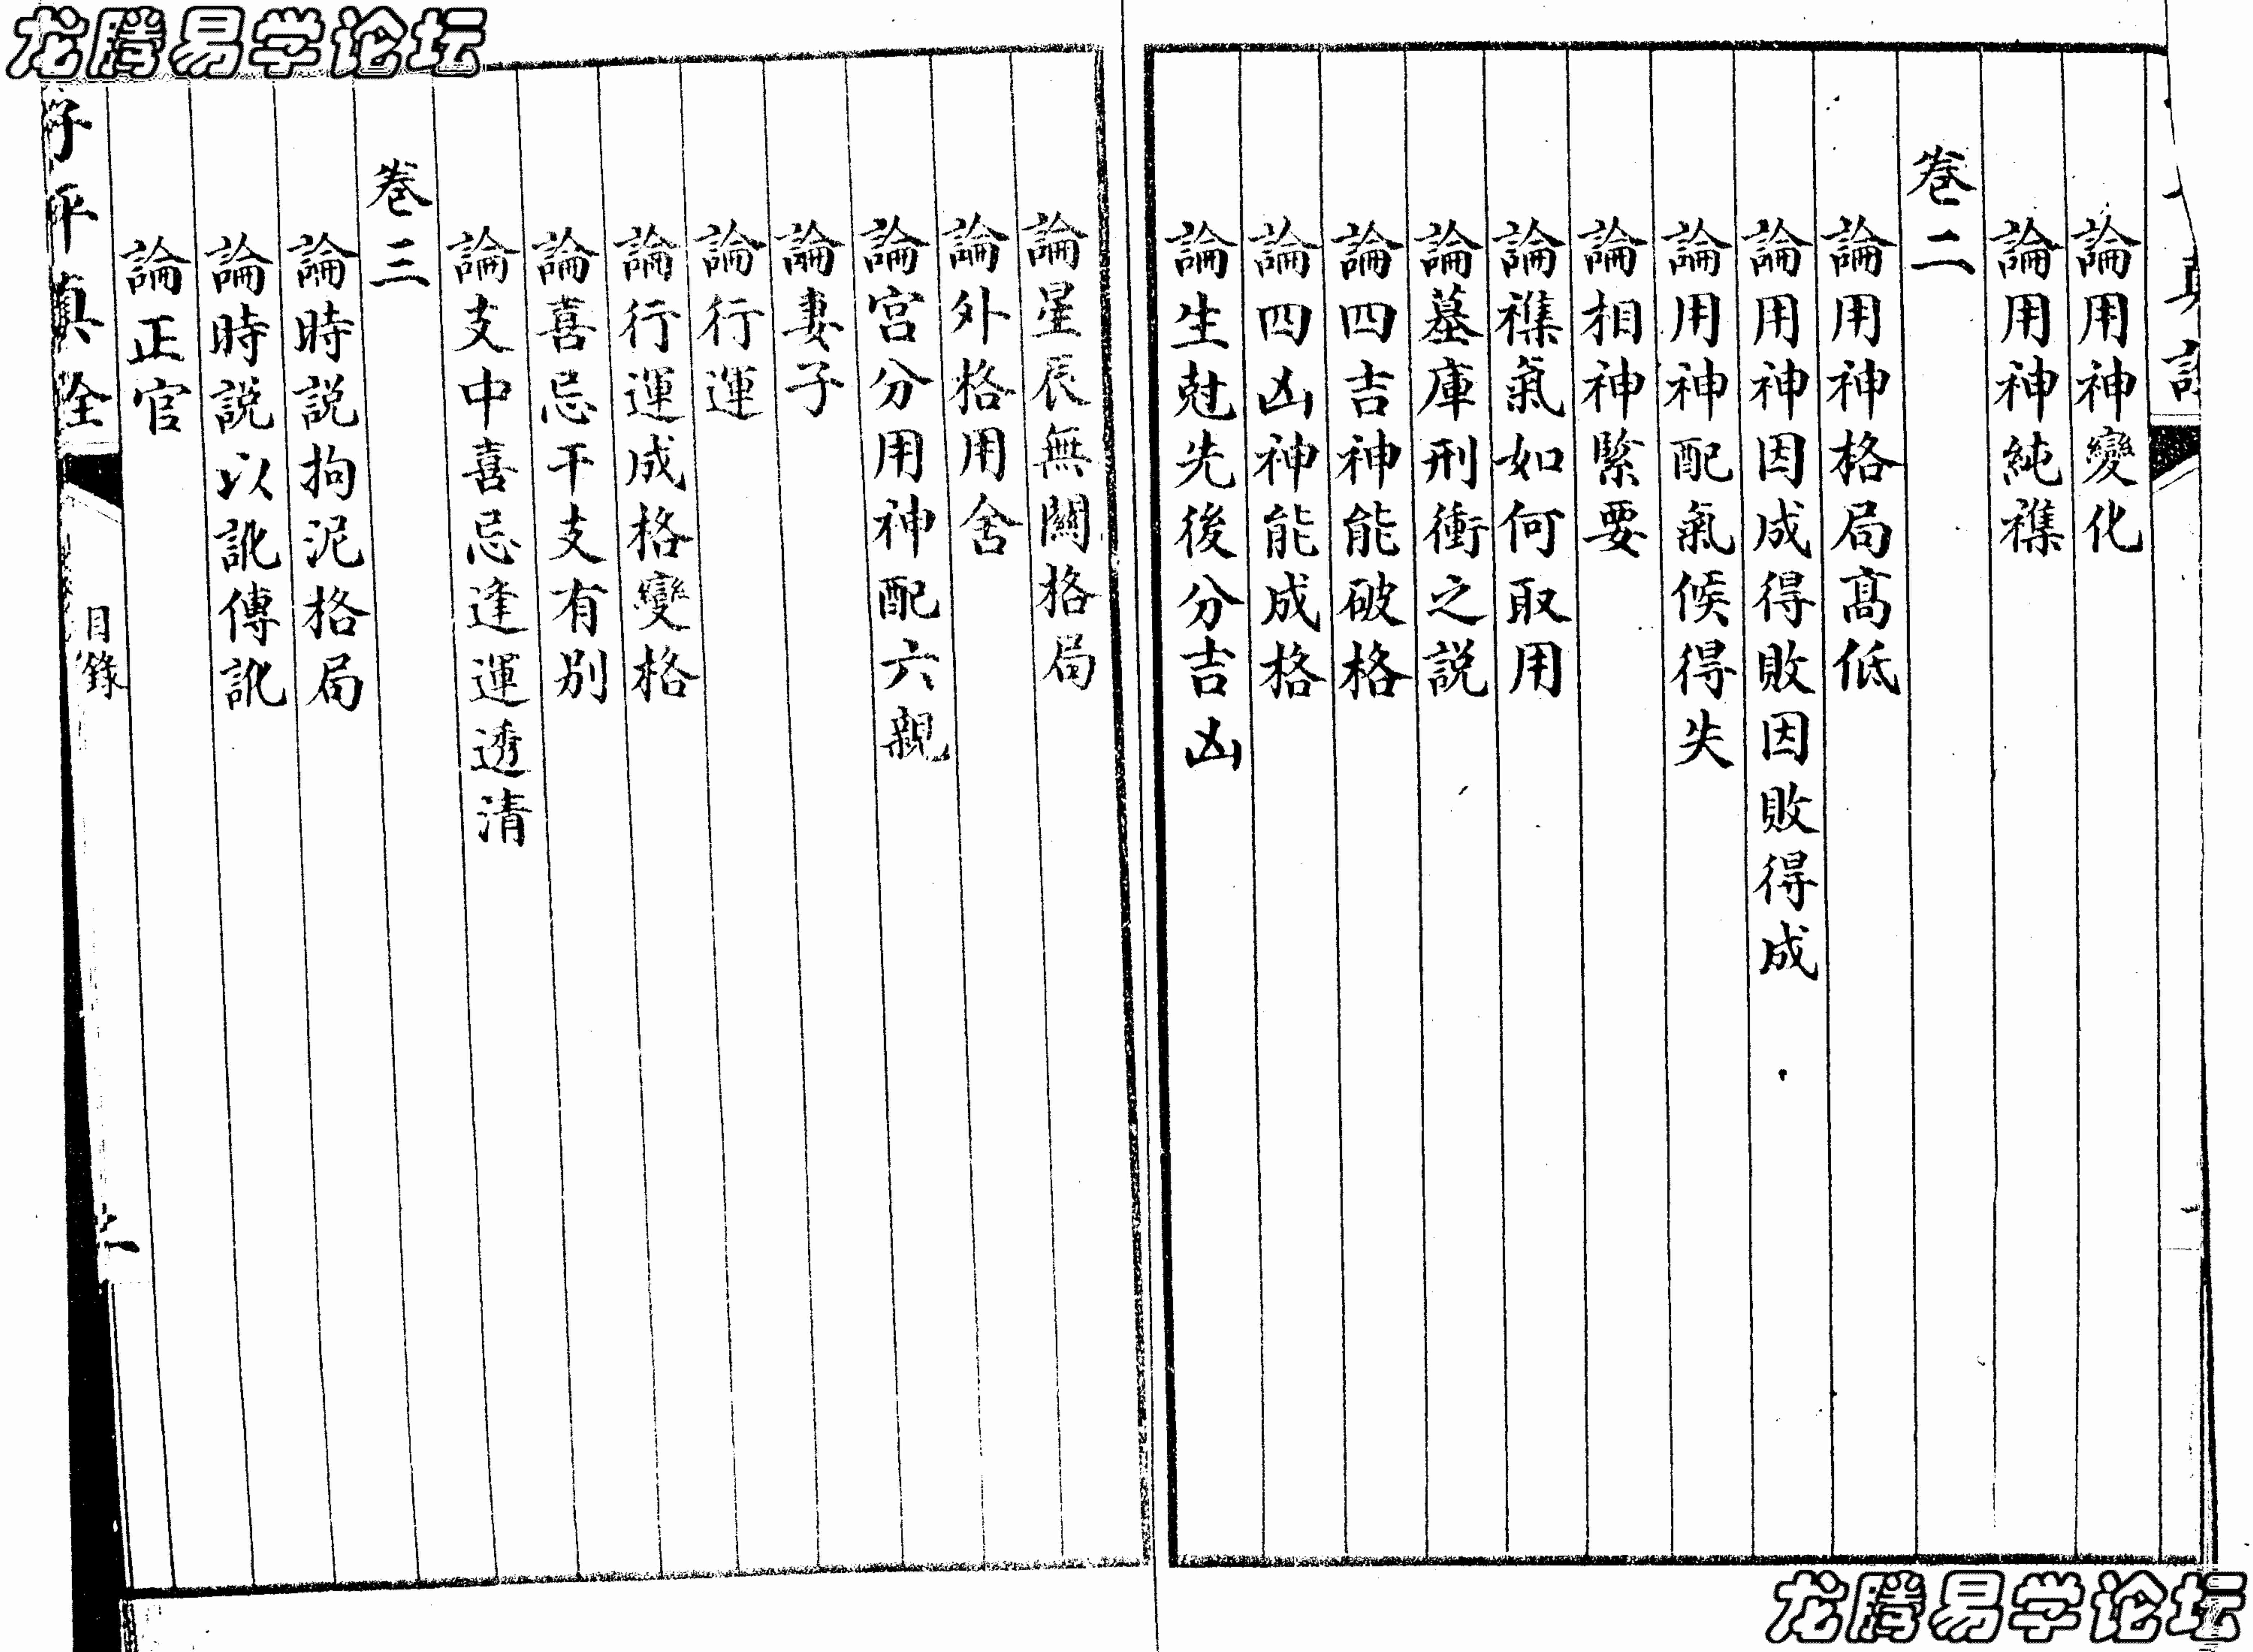 龙腾易学论坛
論用神變化
論用神純襍
卷二
論用神格局髙低
論用神因成得敗因敗得成
論用神配氣候得失
論相神緊要
論襍氣如何取用
論墓庫刑衝之説
論四吉神能破格
論四凶神能成格
論生尅先後分吉凶
論星辰無關格局
論外格用舍
論宫分用神配六親
論妻子
論行運
論行運成格變格
論喜忌干支有别
論支中喜忌逢運透清
卷三
論時説拘泥格局
論時説以訛傳訛
論正官
子平真詮
目錄
龙腾易学论坛